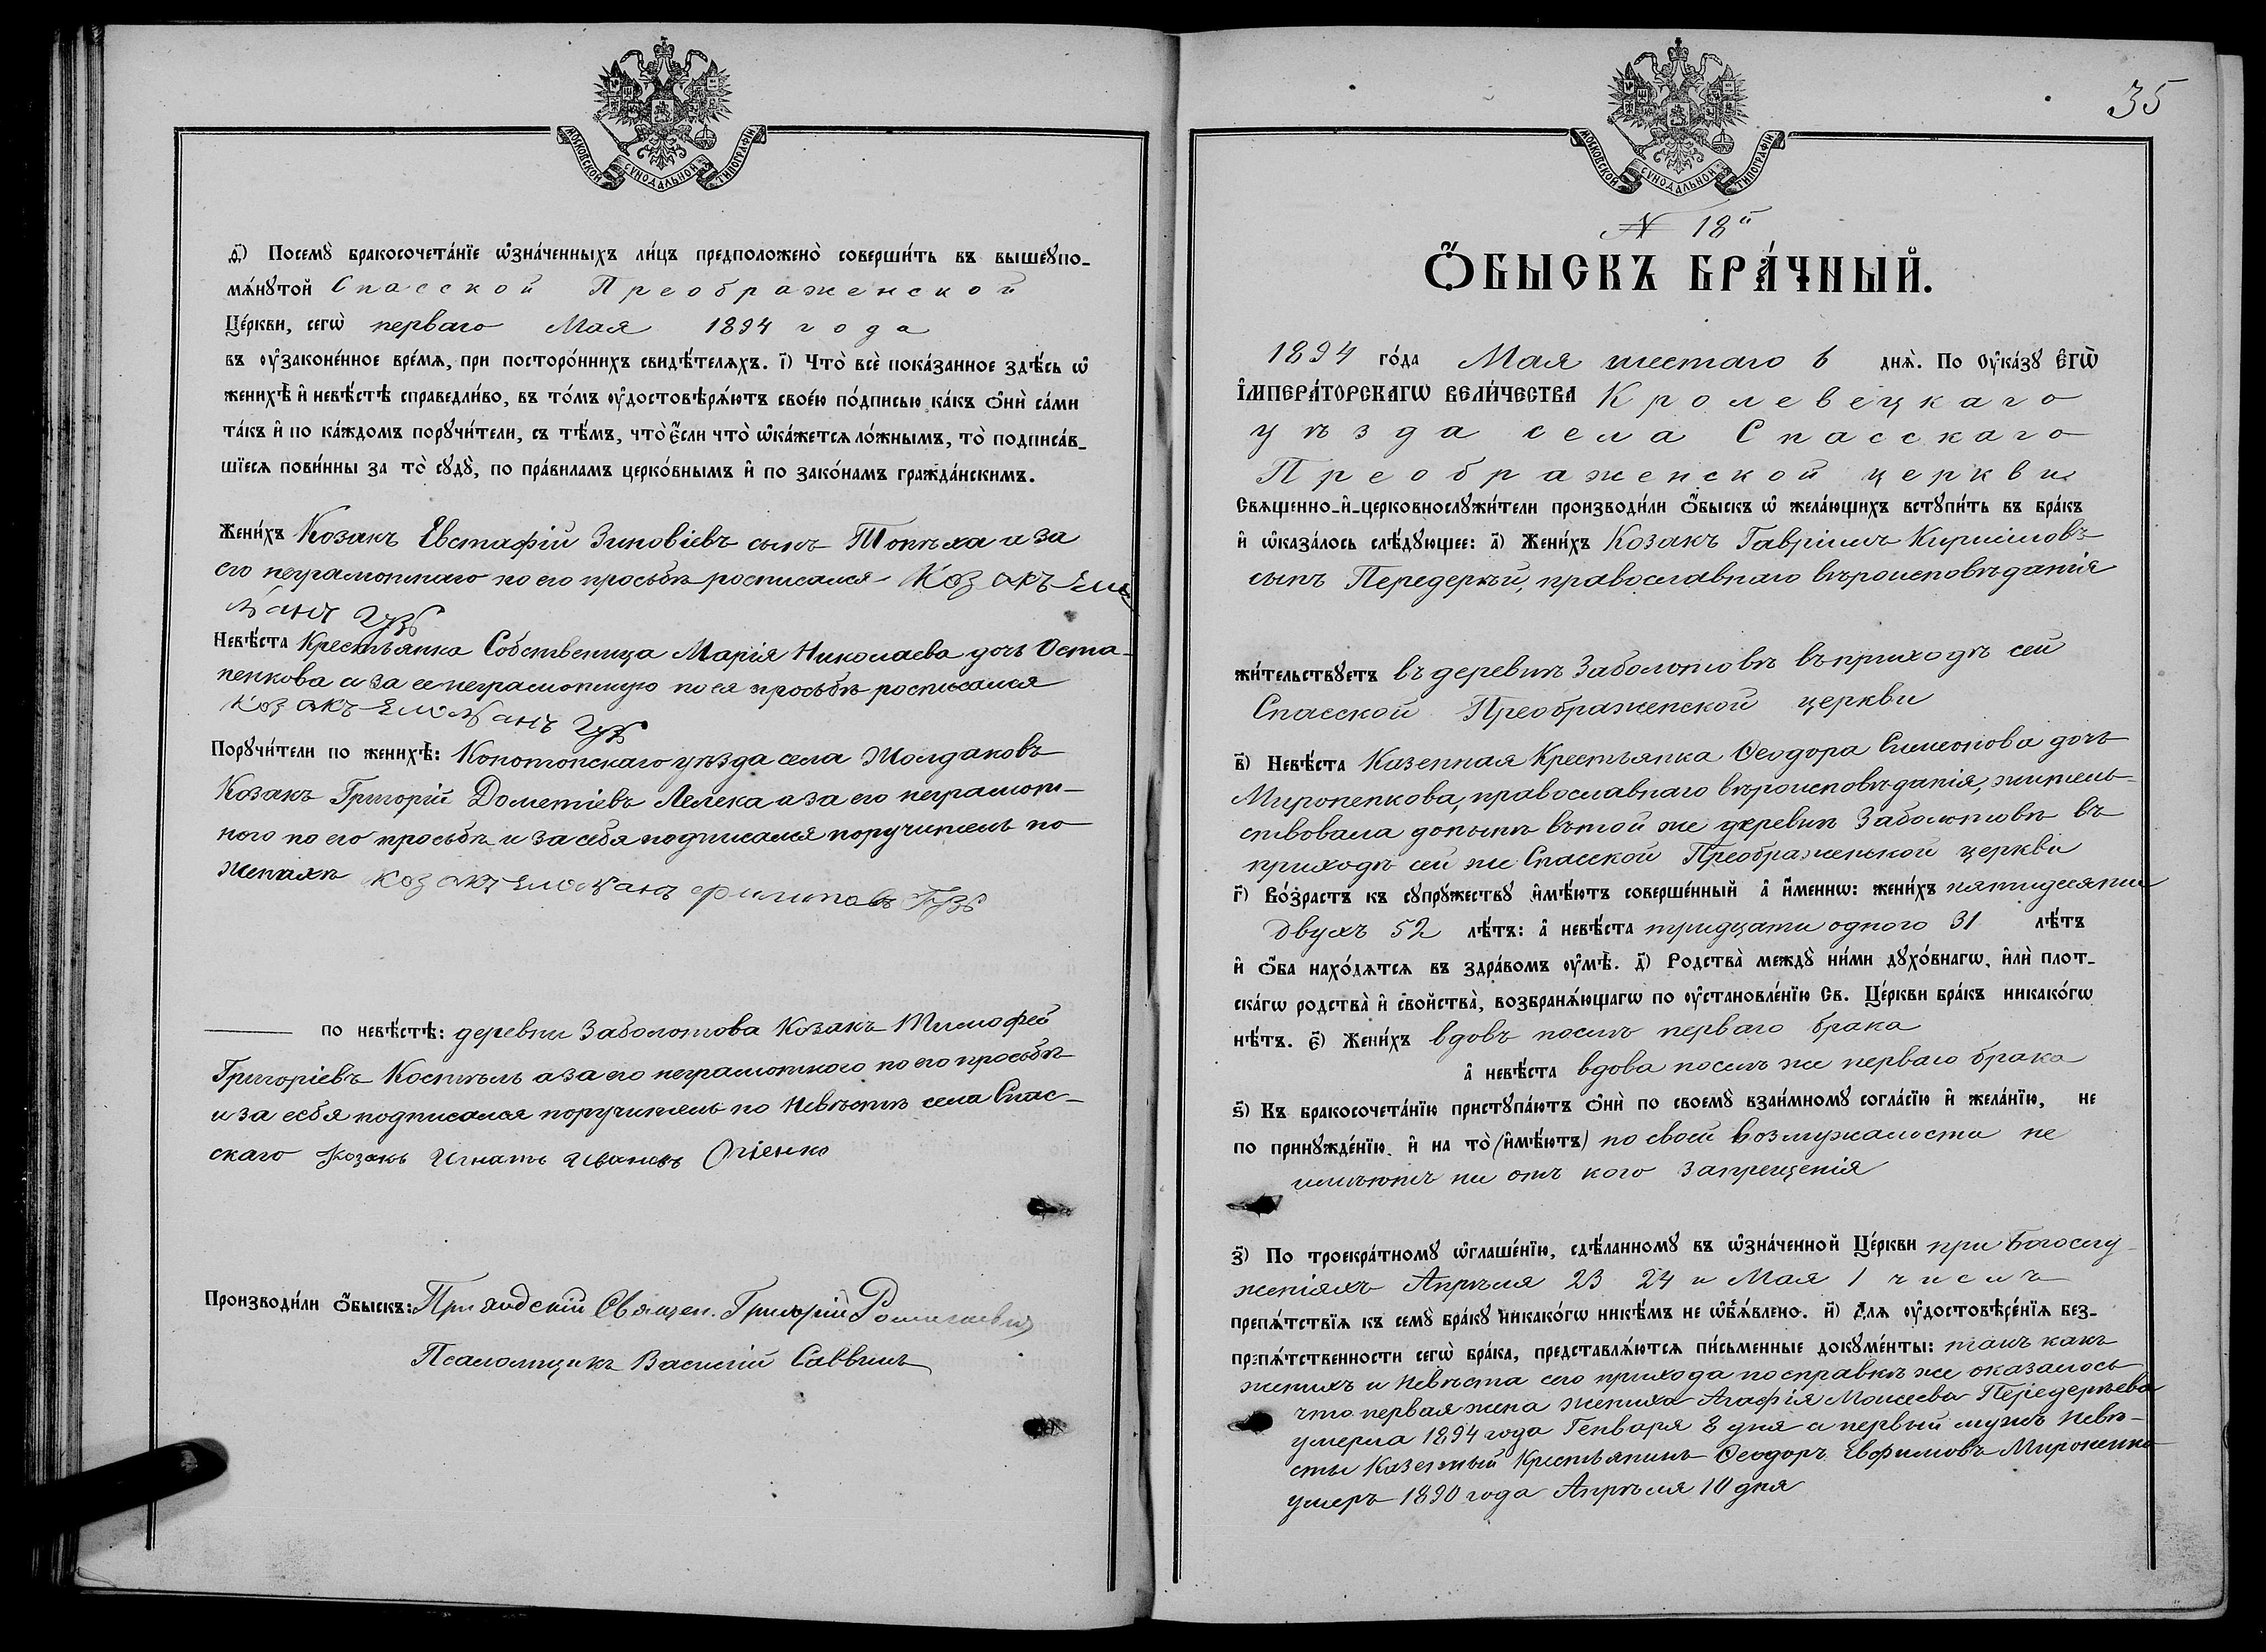 МОСКОВСКОЙ СѴНОДАЛЬНОЙ ТИПОГРАФІИ
д҃і) Посемꙋ̀ бракосочета́нїе ѡ҆зна́ченныхъ ли́цъ предположено̀ соверши́ть въ вышеꙋпо-
мѧ́нꙋтой Спасской Преображенской
Це́ркви, сегѡ̀ перваго Мая 1894 года
въ оу҆законе́нное вре́мѧ, при посторо́ннихъ свидѣ́телѧхъ. і҃) Что̀ всѐ пока́занное здѣ́сь ѡ҆
женихѣ̀ и҆ невѣ́стѣ справедли́во, въ то́мъ оу҆достовѣрѧ́ютъ свое́ю по́дписью ка́къ ѻ҆нѝ са́ми
та́къ и҆ по ка́ждомъ порꙋчи́тели, съ тѣ́мъ, что̀ є҆́сли что̀ ѡ҆ка́жетсѧ ло́жнымъ, то̀ подписа́в-
шїесѧ пови́нны за то̀ сꙋдꙋ̀, по пра́виламъ церко́внымъ и҆ по зако́намъ гражда́нскимъ.
Жени́хъ Козакъ Евстафій Зиновіевъ сынъ Топѣха а за
его неграмотнаго по его просьбѣ росписался Козакъ Еме
льянъ Гузь
Невѣ́ста Крестьянка Собственица Марія Николаева дочь Оста-
пенкова а за ее неграмотную по ея просьбѣ росписался
Козакъ Емельянъ Гузь
Порꙋчи́тели по женихѣ̀: Конотопскаго уѣзда села Жолдаковъ
Козакъ Григорій Дометіевъ Лелека а за его неграмот-
ного по его просьбѣ и за себя подписался поручитель по
женихѣ Козакъ Емельянъ Филиповъ Гузь
по невѣ́стѣ: деревни Заболотова Козакъ Тимофей
Григоріевъ Костѣль а за его неграмотного по его просьбѣ
и за себя подписался поручитель по Невѣстѣ села Спас-
скаго Козакъ Игнатъ Ивановъ Огіенко
Производи́ли ѻ҆́быскъ: Приходскій Священ. Григорій
Псаломщикъ Василій Саввинъ
35
МОСКОВСКОЙ СѴНОДАЛЬНОЙ ТИПОГРАФІИ
N 18й
Ѻ҆́БЫСКЪ БРА́ЧНЫЙ.
1894 го́да Мая шестаго 6 днѧ̀. По Оу҆ка́зꙋ Є҆ГѠ̀
І҆МПЕРА́ТОРСКАГѠ ВЕЛИ́ЧЕСТВА Кролевецкаго
уѣзда села Спасскаго
Преображенской церкви
Свѧщенно-и҆-церковнослꙋжи́тели производи́ли ѻ҆́быскъ ѡ҆ жела́ющихъ встꙋпи́ть въ бра́къ
и҆ ѡ҆каза́лось слѣ́дꙋющее: а҃) Жени́хъ Козакъ Гавріилъ Кириловъ
сынъ Передерѣй, православнаго вѣроисповѣданія
жи́тельствꙋетъ въ деревнѣ Заболотовѣ въ приходѣ сей
Спасской Преображенской церкви
в҃) Невѣ́ста Казенная Крестьянка Ѳеодора Симеонова дочь
Мироненкова, православнаго вѣроисповѣданія, житель-
ствовала донынѣ въ той же деревнѣ Заболотовѣ въ
приходѣ сей же Спасской Преображенской церкви
г҃) Во́зрастъ къ сꙋпрꙋ́жествꙋ и҆мѣ́ютъ соверше́нный а҆ и҆́менно: жени́хъ пятидесяти
двухъ 52 лѣ́тъ: а҆ невѣ́ста тридцати одного 31 лѣ́тъ
и҆ ѻ҆́ба нахо́дѧтсѧ въ здра́вомъ оу҆мѣ̀. д҃) Родства̀ междꙋ̀ ни́ми дꙋхо́внагѡ, и҆лѝ плот-
ска́гѡ родства̀ и҆ свойства̀, возбранѧ́ющагѡ по оу҆становле́нїю Св. Це́ркви бра́къ никако́гѡ
нѣ́тъ. є҃) Жени́хъ вдовъ послѣ перваго брака
а҆ невѣ́ста вдова послѣ же перваго брака
ѕ҃) Къ бракосочета́нїю пристꙋпа́ютъ ѻ҆нѝ по своемꙋ̀ взаи́мномꙋ согла́сїю и҆ жела́нїю, не
по принꙋжде́нїю, и҆ на то̀ (и҆мѣ́ютъ) по своей возмужалости не
имѣютъ ни отъ кого запрещенія
з҃) По троекра́тномꙋ ѡ҆глаше́нїю, сдѣ́ланномꙋ въ ѡ҆зна́ченной Це́ркви при богослу-
женіяхъ Апрѣля 23 24 и Мая 1 числъ
препѧ́тствїѧ къ семꙋ̀ бра́кꙋ никако́гѡ никѣ́мъ не ѡ҆б̾ѧ́влено. и҃) Длѧ оу҆достовѣре́нїѧ без-
препѧ́тственности сегѡ̀ бра́ка, представлѧ́ютсѧ пи́сьменные докꙋме́нты: такъ какъ
женихъ и невѣста сего прихода по справкѣ же оказалось
что первая жена жениха Агафія Моисеева Передерѣева
умерла 1894 года Генваря 8 дня а первый мужъ невѣ-
сты Казенный Крестьянинъ Ѳеодоръ Евфимовъ Мироненко
умеръ 1890 года Апрѣля 10 дня